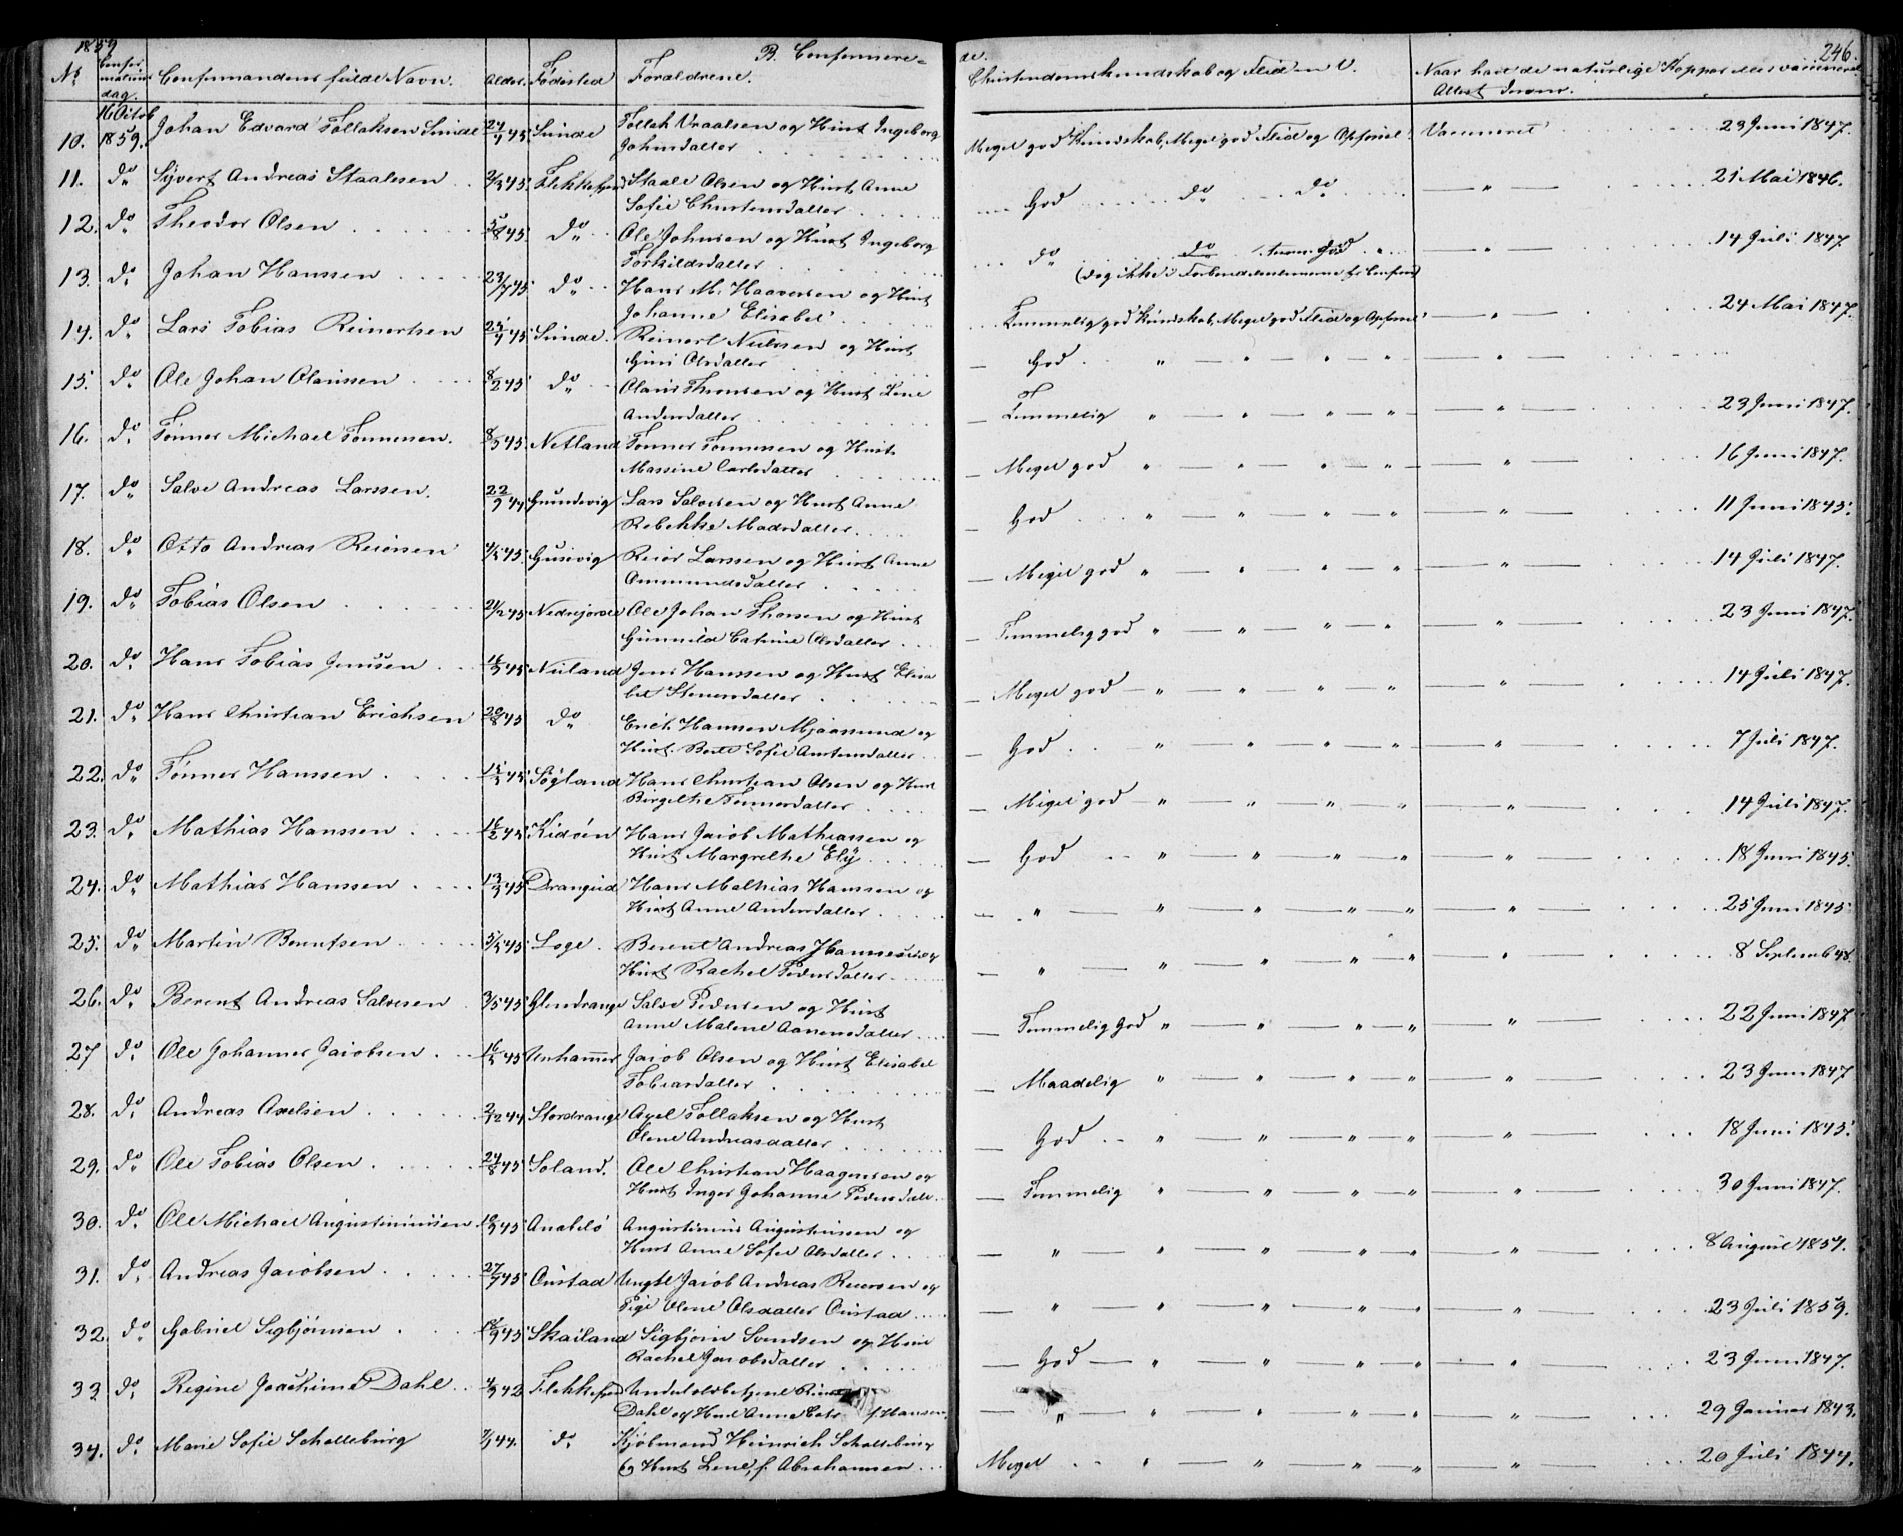 1859
B. Confirmere= de.
246.
No Confirmations dag. Confirmandens fulde Navn. Alder. Fødested Forældrene. Christendomskundskab og Flid m. V. Naar havt de naturlige Kopper eller vaccineret
Attest derom.
10. 16 Octob 1859. Johan Edvard Tollaksen Sunde 24/9 45 Sunde Tollak Vraalsen og Hust Ingeborg Johnsdatter Meget god Kundskab, Meget god Flid og Opførsel Vaccineret 23 Juni 1847.
11. do Syvert Andreas Staalesen 2/3 45 Flekkefjord Staale Olsen og Hust Anne Sofie Christensdatter God do do — " — 21 Mai 1846.
12. do Theodor Olsen 5/8 45 do Ole Johnsen og Hust Ingeborg Torkildsdatter do do — " — 14 Juli 1847
(dog ikke i
13. do Johan Hanssen 23/7 45 do Hans M. Haaversen og Hust Johanne Elisabet Temmelig god Kundskab, Meget god Flid og Opførsel — " — 24 Mai 1847.
14. do Lars Tobias Reinertsen 25/9 45 Sunde Reinert Nielsen og Hust Guri Olsdatter God " — " — " — " — " —
15. do Ole Johan Olaussen 8/2 45 do Olaus Thorsen og Hust Lene Andersdatter Temmelig " — " — " — " — " — 23 Juni 1847.
16. do Tønnes Michael Tønnessen. 8/5 45 Netland Tønnes Tønnessen og Hust Massine Carlsdatter — Meget god " — " — " — " — " — 16 Juni 1847.
17. do Salve Andreas Larssen. 22/9 44 Gundevig Lars Salvesen og Hust Anne Rebekke Madsdatter — God " — " — " — " — " — 11 Juni 1845.
18. do Otto Andreas Reiersen 4/5 45 Gusevig Reier Larssen og Hust Anne Ommundsdatter — Meget god " — " — " — " — " — 14 Juli 1847.
19. do Tobias Olsen 21/2 45 Nedrejorde Ole Johan Thorsen og Hust Gunnild Catrine Olsdatter — Temmelig god " — " — " — " — " — 23 Juni 1847.
20. do Hans Tobias Jenssen 45 Nuland Jens Hanssen og Hust Elisabet Steensdatter — Meget god — " — " — " — " — " — 14 Juli 1847.
21. do Hans Christian Erichsen 20/8 45 do Erich Hanssen Mjaasund og Hust. Berte Sofie Austensdatter — God " — " — " — " — " — 7 Juli 1847.
22. do Tønnes Hanssen 15/3 45 Søyland Hans Christian Olsen og Hust Birgethe Tønnesdatter — Meget god — " — " — " — " — " — 14 Juli 1847.
23. do Mathias Hanssen 16/2 45 Kidøen Hans Jacob Mathiassen og Hust Margrethe Ely — God " — " — " — " — " — 18 Juni 1845.
24. do Mathias Hanssen 13/3 45 Drangeid Hans Mathias Hanssen og Hust Anne Andersdatter — " — " — " — " — " — " — 25 Juni 1845
25. do Martin Berentsen 5/5 45 Loge Berent Andreas Hannessen og Hust Rachel Pedersdatter — " — " — " — " — " — " — 8 Septemb 48.
26. do Berent Andreas Salvesen 3/5 45 Glendrange Salve Pedersen og Hust Anne Malene Aanensdatter — Temmelig God " — " — " — " — " — 22 Juni 1847
27 do Ole Johannes Jacobsen 16/5 45 Urhammer Jacob Olsen og Hust Elisabet Tobiasdatter — Maadelig " — " — " — " — " — 23 Juni 1847
28. do Andreas Axelsen 2/12 44 Stordrange Axel Tollaksen og Hust Olene Andreasdatter — God " — " — " — " — " — 18 Juni 1845.
29. do Ole Tobias Olsen 24/8 45 Soland. Ole Christian Haagensen og Hust Inger Johanne Pedersdatt — Temmelig " — " — " — " — " — 30 Juni 1847.
30. do Ole Michael Augustinussen 45 Anabelø Augustinus Augustinussen og Hust Anne Sofie Olsdatter — " — " — " — " — " — " — 8 August 1857.
31. do Andreas Jacobsen 27/7 45 Oustad Ungkl Jacob Andreas Reiersen og Pige Olene Olsdatter Oustad — " — " — " — " — " — " — 23 Juli 1859.
32. do Gabriel Sigbjørnsen 18/9 45 Skailand Sigbjørn Svendsen og Hust Rachel Jacobsdatter — God — " — " — " — " — " — 23 Juni 1847.
33 do Regine Joachime Dahl 4/9 42 Flekkefjord Undertoldbetjent Dahl og Hust Anne f. Hansen — " — " — " — " — " — " — 29 Januar 1843.
34. do Marie Sofie Schatteburg 44. do Kjøbmand Heinrich Schatteburg og Hust Lene, f. Abrahamsen Meget " — " — " — " — " — 20 Juli 1844.